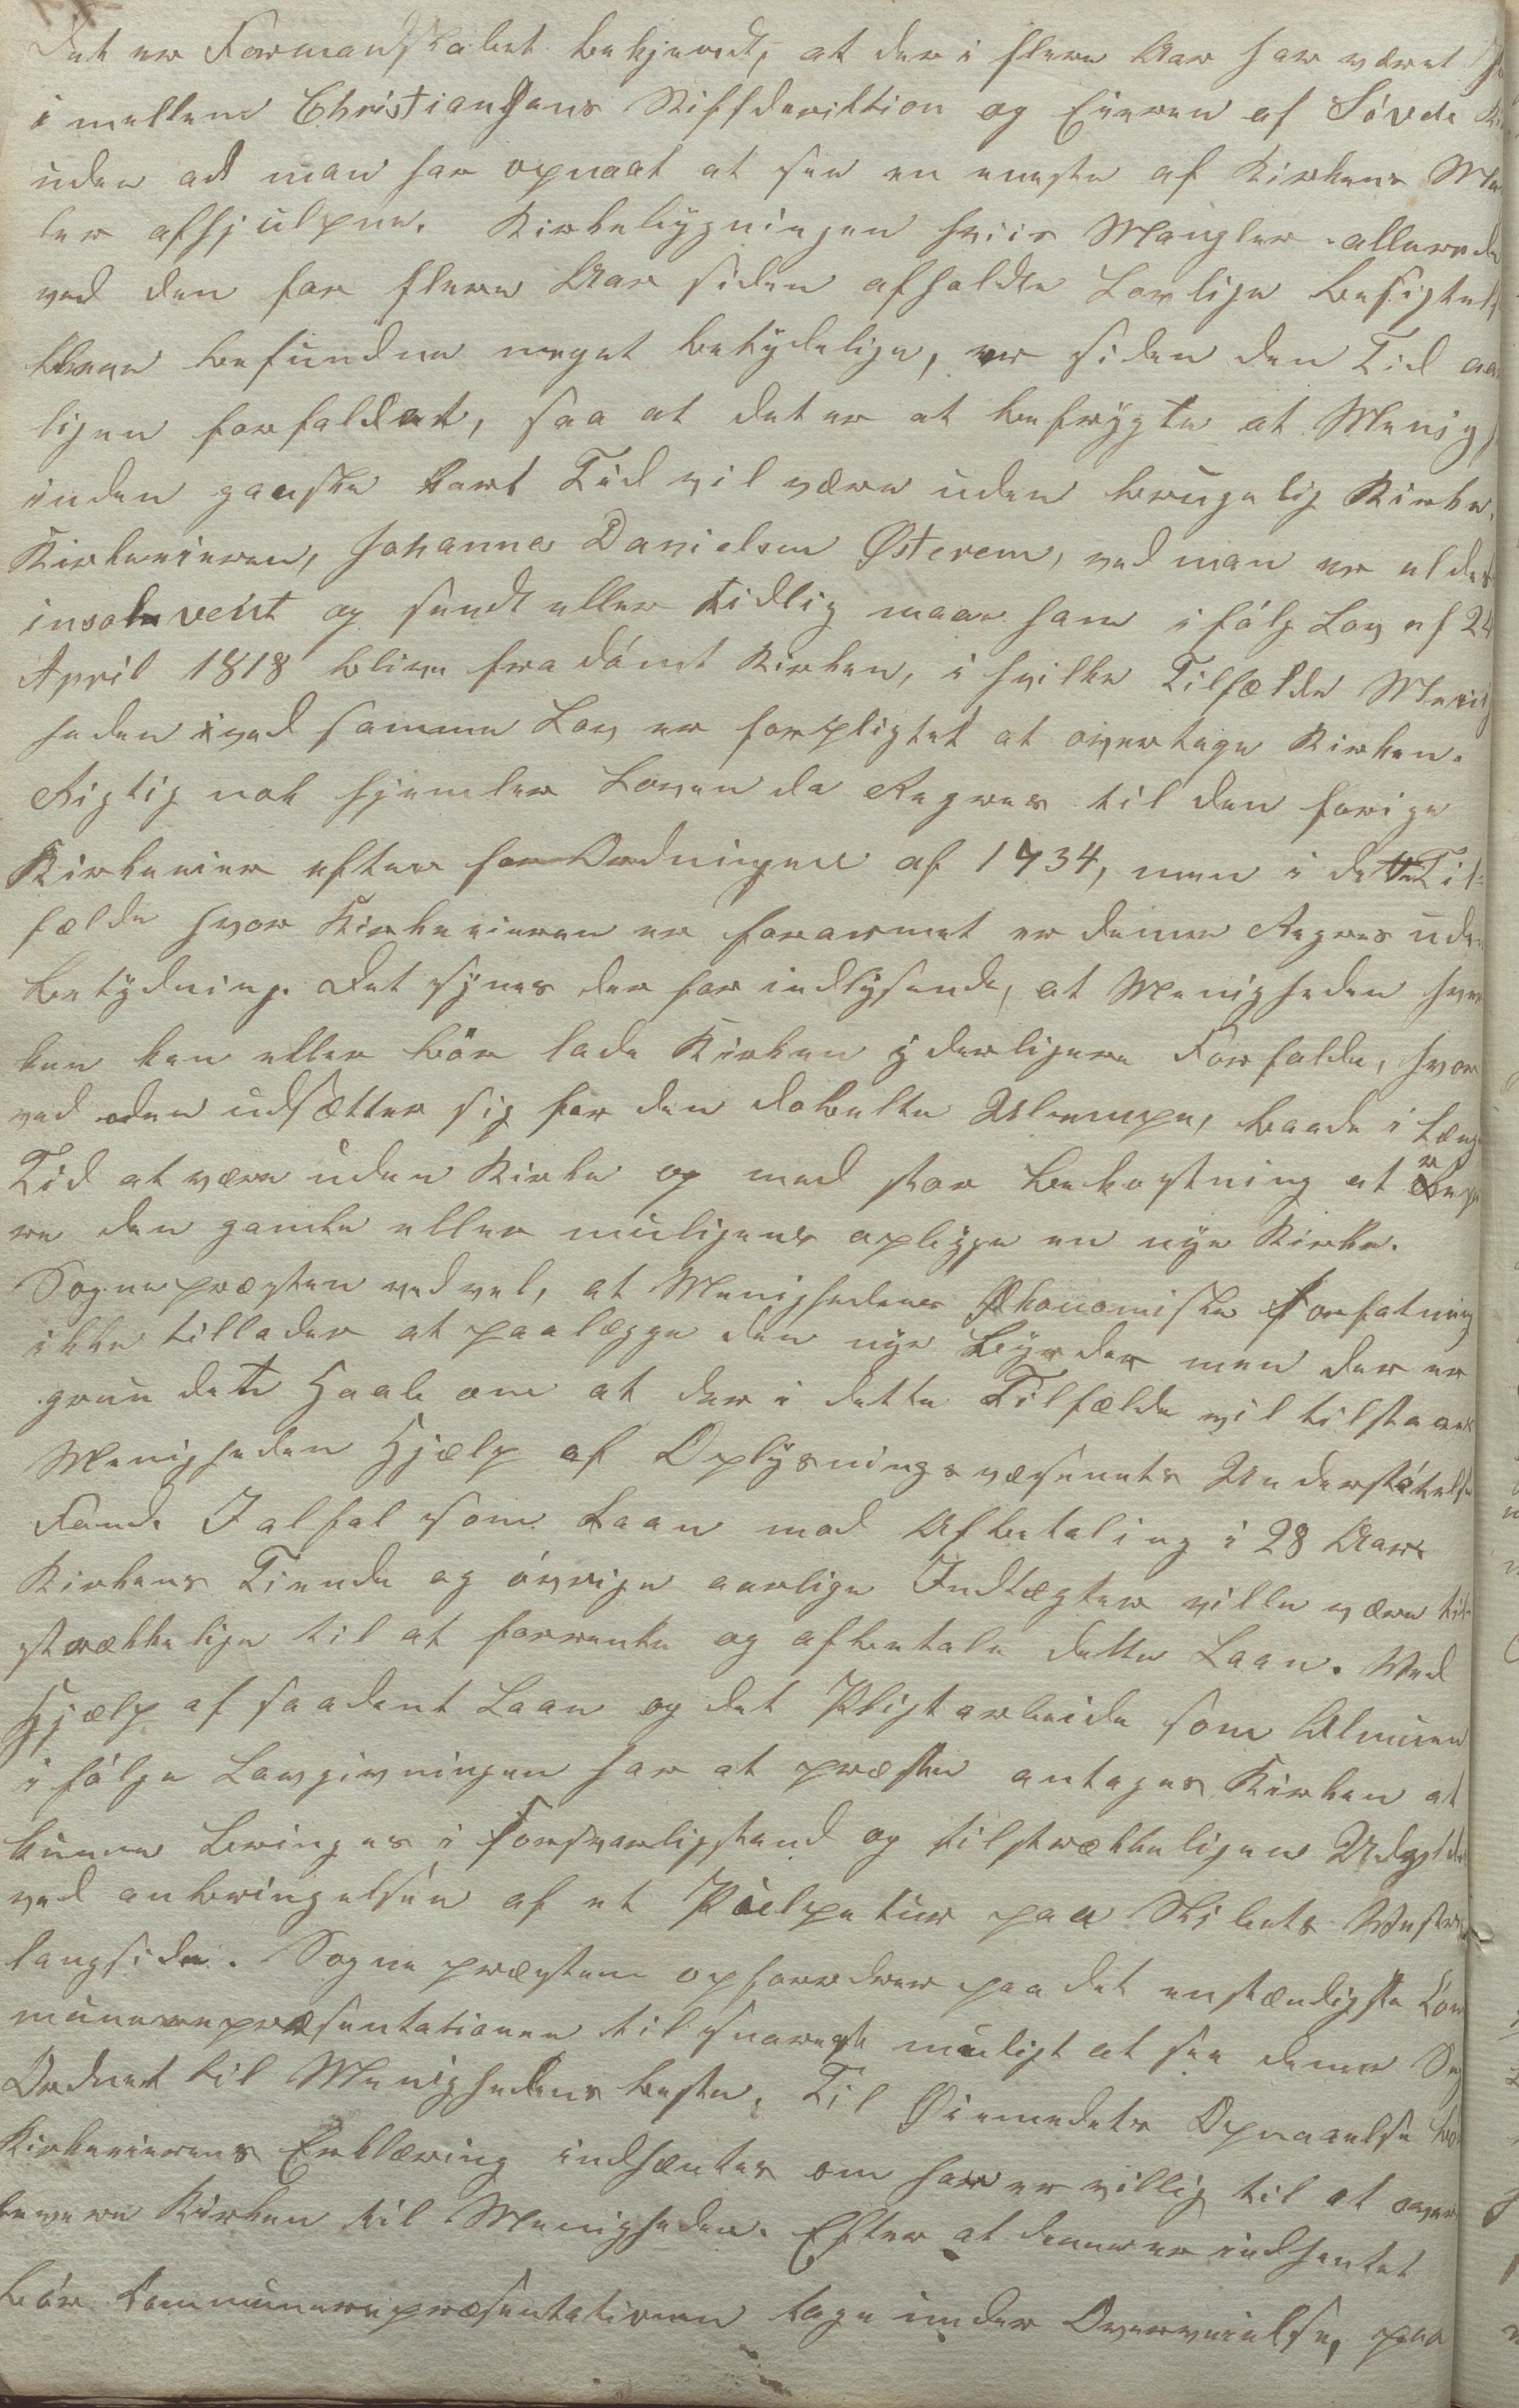 Det er Formandskabet bekjendt, at der i flere Aar har været
imellem Christiansans Stiftsdirektion og Eieren af Søvde
uden at man har opnaaet at see en eneste af Kirkens
ler afhjulpne. Kirkebygningen hviis Mangler allerede
ved den for flere Aar siden afholdte Lovlige Besigtel
bleve befundne meget betydelige, er siden den Tid
ligen forfaldet, saa at det er at befrygte at Menigh
inden ganske kort Tid vil være uden brugelig Kirke.
Kirkeeieren, Johannes Danielsen Østerem, ved man er
insolvent og sendt eller tidlig maae han ifølg Lov af 24
April 1818 blive fradømt Kirken, i hvilke Tilfælde Menig
heden ved samme Lov er forpligtet at overtage Kirken.
Rigtig nok hjemler Loven da Regres til den forige
Kirkeeier efter forOrdningen af 1734, men i dette Til=
fælde hvor Kirkeeieren er forarmet er denne Regres uden
betydning. Det synes der for indlysende, at Menigheden hver
ken kan eller bør lade Kirken yderligere Forfalde, hvor
ved den udsætter sig for den dobelte Ulempe, baade i læng
Tid at være uden Kirke og med stor bekostning at
re den gamle eller muligens oplygge en nye Kirke.
Sognepræsten ved vel, at Menighedens Økonomiske Forfatning
ikke tillader at paalægge den nye Byrder men der er
grundet Haab om at der i dette Tilfælde vil tilstaaes
Menigheden Hjælp af Oplysningsvæsenets Understøtelse
Fond. Ialfal som Laan mod Afbetaling i 28 Aar.
Kirkens Tiende og øvrige aarlige Indtægter ville være til
strækkelige til at forrente og afbetale dette Laan. Ved
Hjælp af saadant Laan og det Pligtarbeide som Almuen
ifølge Lovgivningen har at præste antages Kirken at
kunne bringes i forsvarligstand og tilstrækkeligen
ved anbringelsen af et Puelpetur paa Skibets
langside. Sognepræsten opfordrer paa det enstændigste Com
munerepræsentationen til snarest muligt at see denne Sag
Ordnet til Menighedens beste. Til Øiemedets Opnaaelse bør
Kirkeeierens Erklæring indhæntes om han er villig til at over
levere Kirken til Menigheden. Efter at denne er indhentet
bør Communerepræsentationen tage under Overveielse, paa